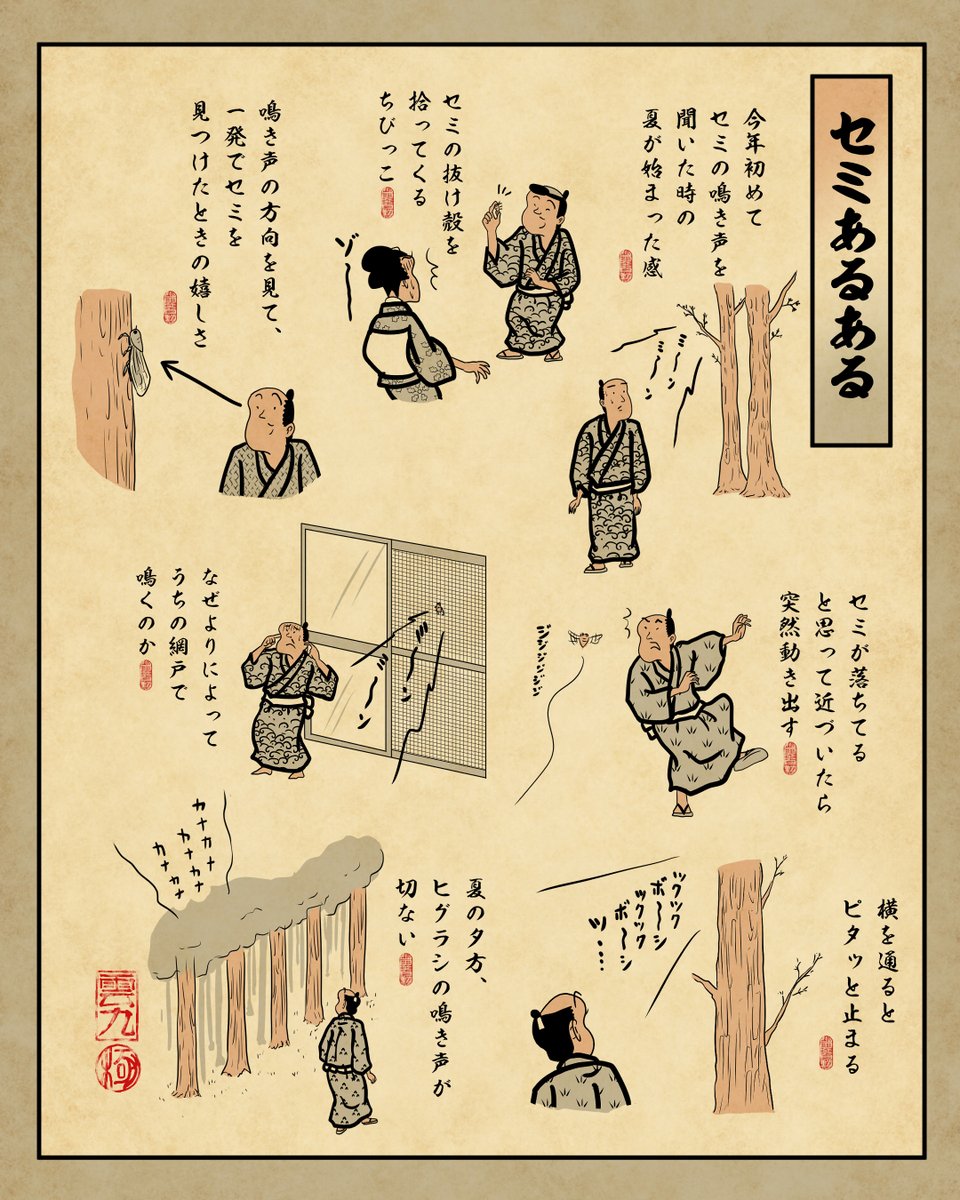 セミあるある
今年初めて
セミの鳴き声を
聞いた時の
夏が始まった感
ミーン
ミーン
セミの抜け殻を
拾ってくる
ちびっこ
ゾー
鳴き声の方向を見て、
一発でセミを
見つけたときの嬉しさ
セミが落ちてる
と思って近づいたら
突然動き出す
ジジジジジジ
なぜよりによって
うちの網戸で
鳴くのか
ミーン
ミーン
横を通ると
ピタッと止まる
ツクツク
ボーシ
ツクツク
ボーシ
ツ・・・・
夏の夕方、
ヒグラシの鳴き声が
切ない
カナカナ
カナカナ
カナカナ